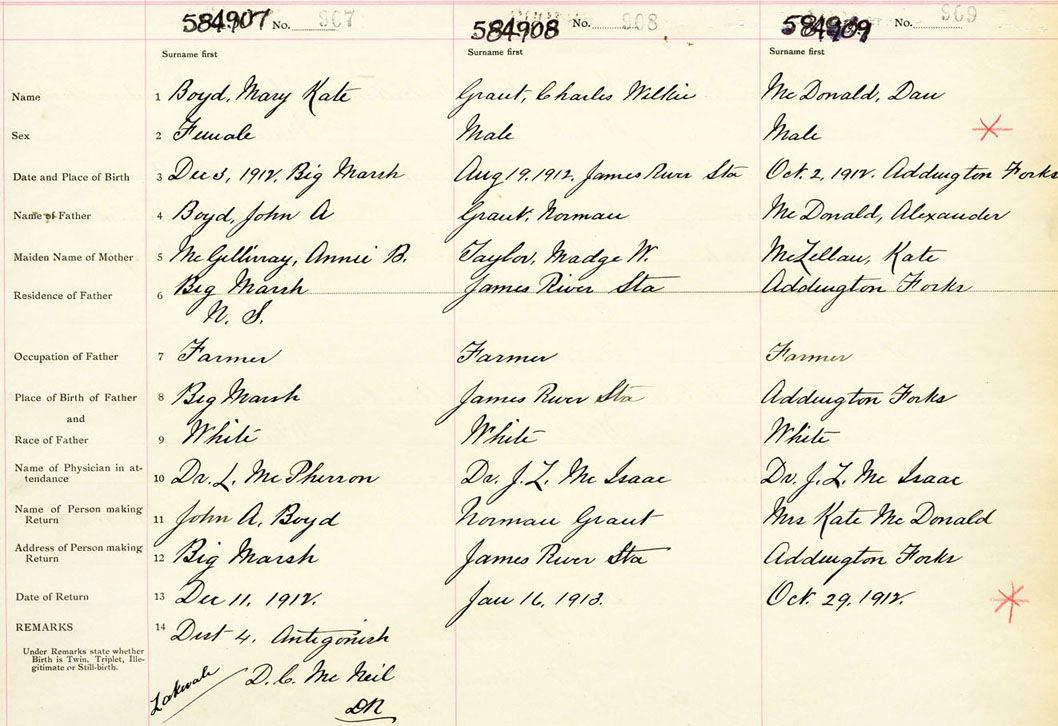 584907 No. 907 584908 No. 908 584909 No. 909
Surname first Surname first Surname first
Name 1 Boyd, Mary Kate Grant, Charles Wilkie McDonald, Dan
Sex 2 Female Male Male
Date and Place of Birth 3 Dec 3, 1912, Big Marsh Aug 19, 1912, James River Sta Oct. 2, 1912. Addington Forks
Name of Father 4 Boyd, John A Grant, Norman McDonald, Alexander
Maiden Name of Mother 5 McGillivray, Annie B. Taylor, Madge W. McLellan, Kate
Residence of Father 6 Big Marsh James River Sta Addington Forks
N. S.
Occupation of Father 7 Farmer Farmer Farmer
Place of Birth of Father 8 Big Marsh James River Sta Addington Forks
and
Race of Father 9 White White White
Name of Physician in at-
tendance 10 Dr. L. McPherron Dr. J. L. McIsaac Dr. J. L. McIsaac
Name of Person making
Return 11 John A. Boyd Norman Grant Mrs Kate McDonald
Address of Person making
Return 12 Big Marsh James River Sta Addington Forks
Date of Return 13 Dec 11, 1912. Jan 16, 1913. Oct. 29, 1912.
REMARKS 14 Dist 4. Antigonish
Under Remarks state whether
Birth is Twin, Triplet, Ille-
gitimate or Still-birth.
Lakevale D. C. McNeil
DR